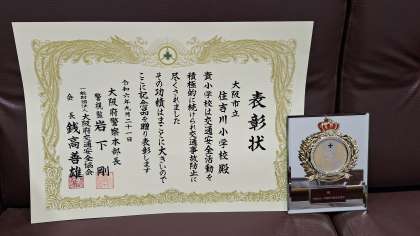 表彰状
大阪市立
住吉川小学校殿
貴小学校は交通安全活動を
積極的に続けられ交通事故防止に
尽くされました
その功績はまことに大きいので
ここに記念品を贈り表彰します
令和六年九月二十一日
大阪府警察本部長
警視監 岩下 剛
一般財団法人大阪府交通安全協会
会長 錢高善雄